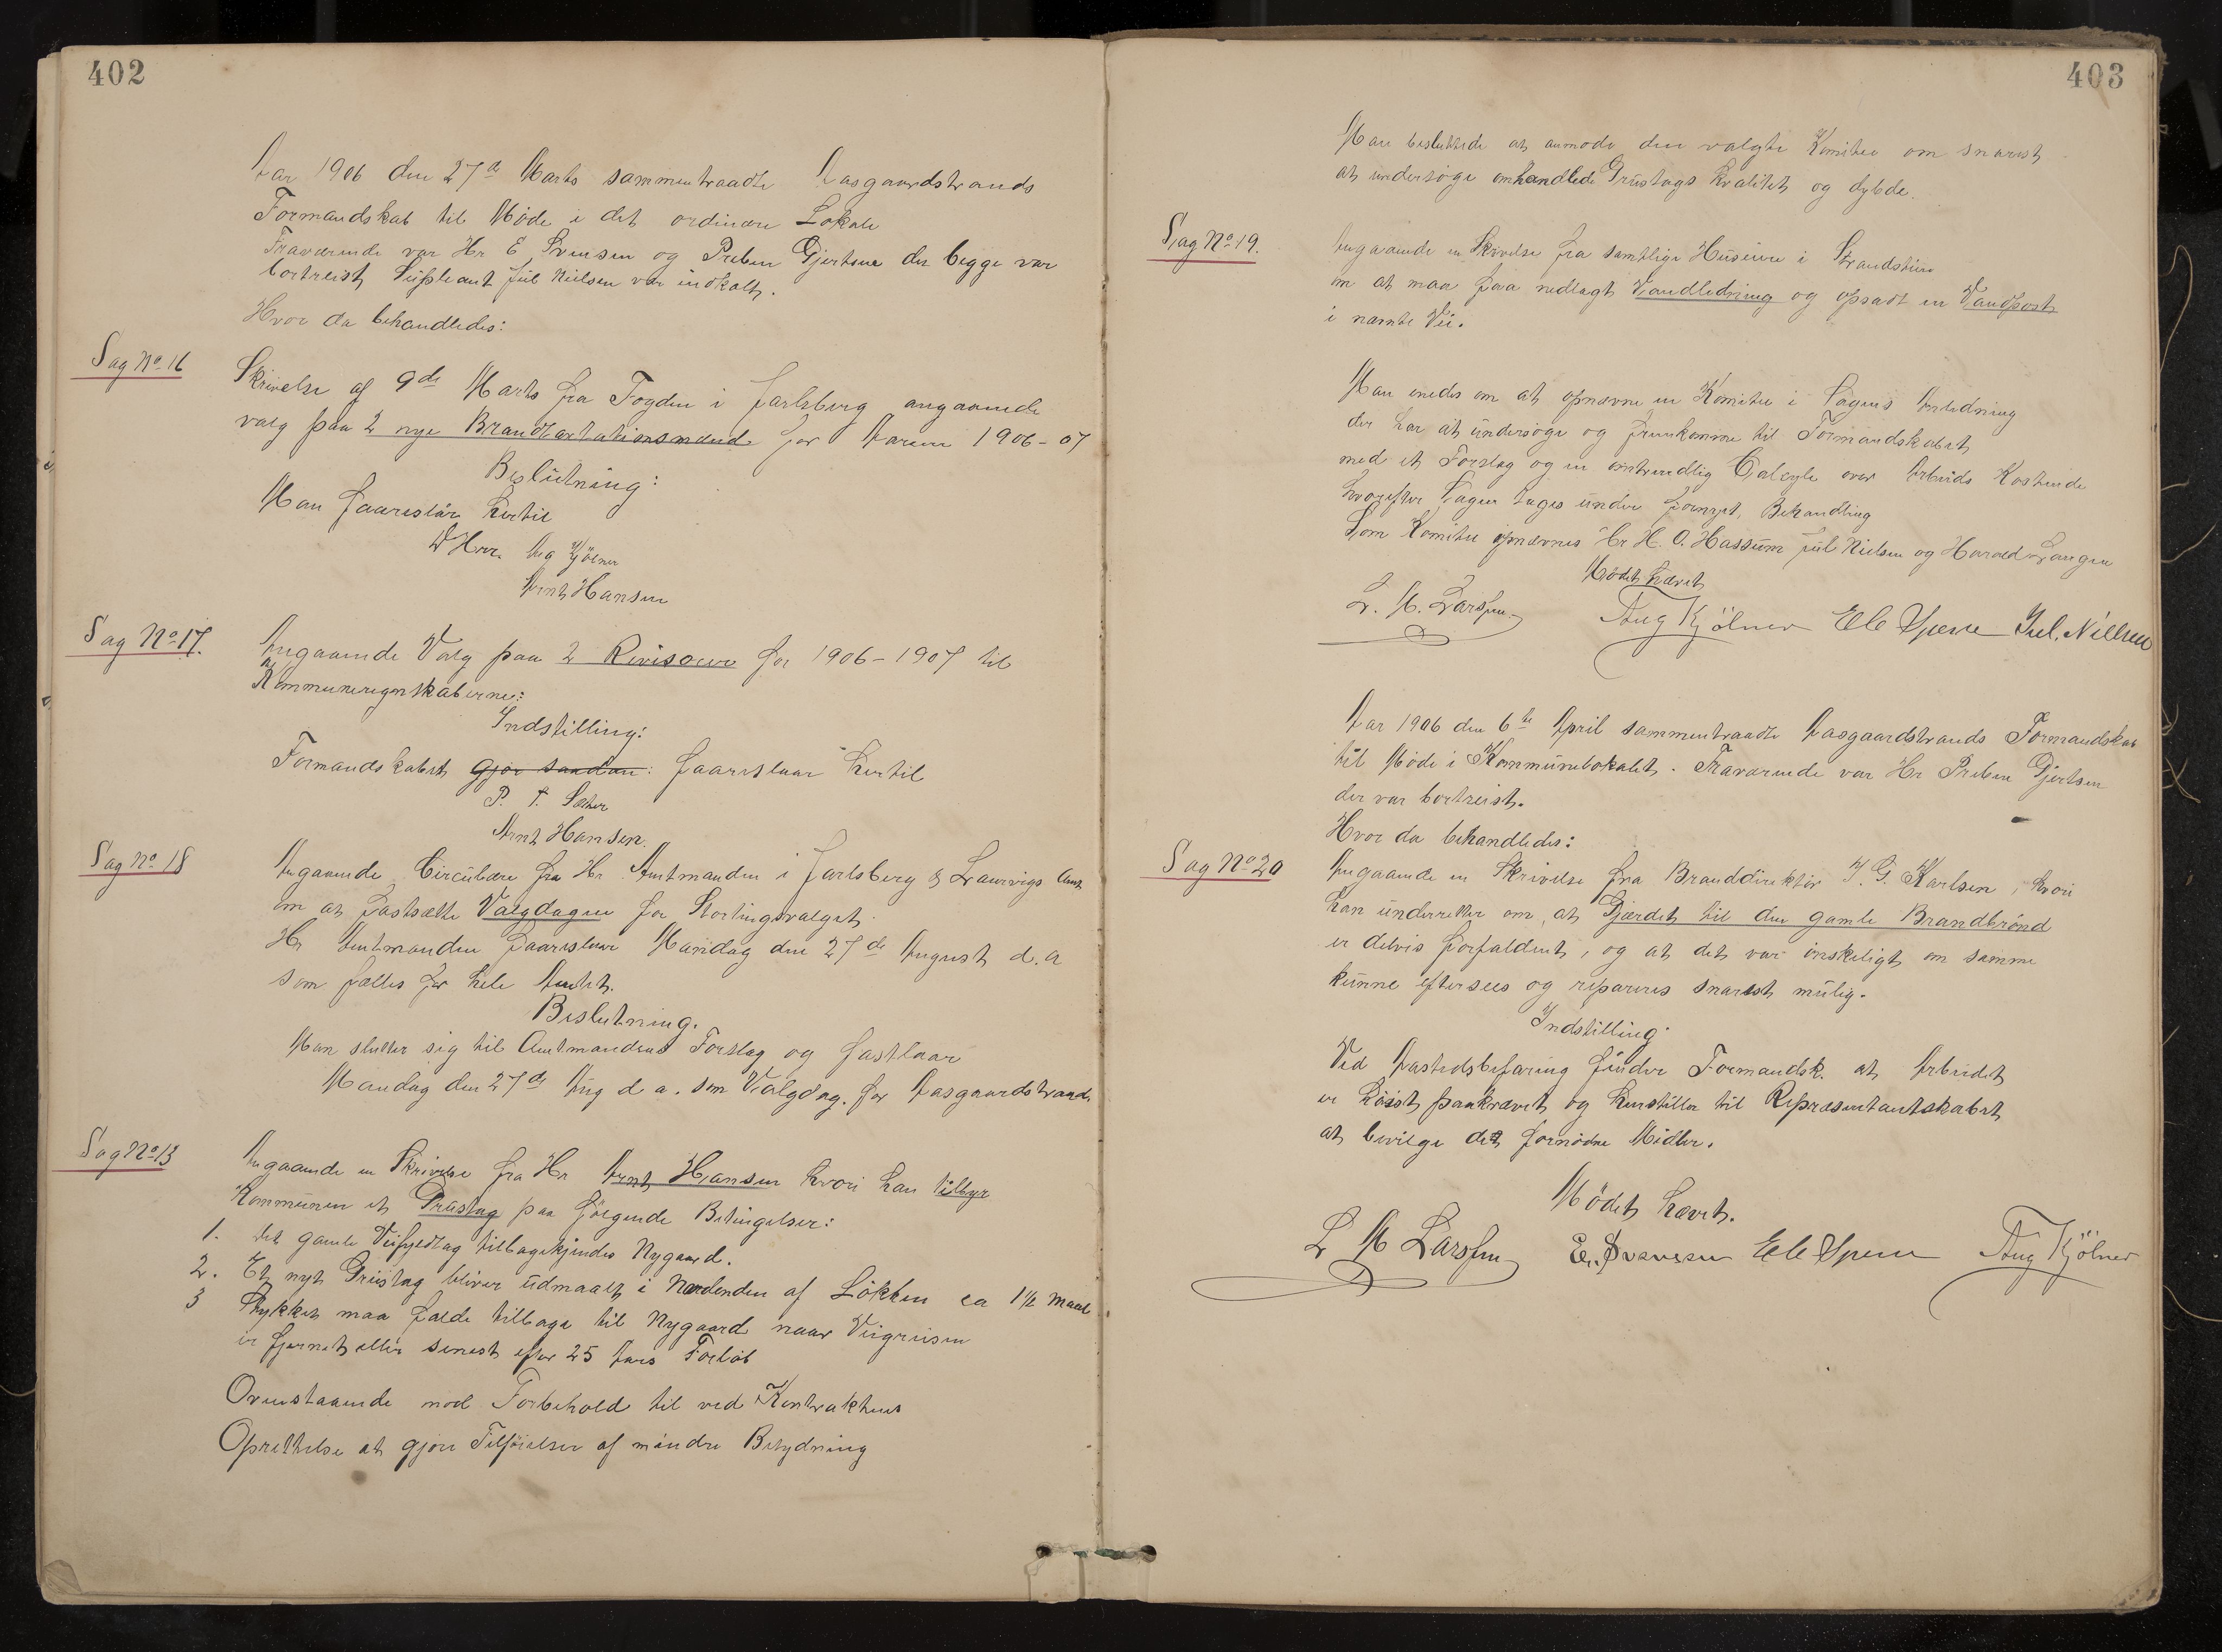 402
Aar 1906 den 27de Marts sammentraadte Aasgaardstrands
Formandskab til Møde i det ordinære Lokale
Fraværende var Hr E Svensen og Preben Gjertsen der begge var
bortreist, Supleant Jul Nielsen var indkalt.
Hvor da behandledes:
Sag No 16
Skrivelse af 9de Marts fra Fogden i Jarlsberg angaaende
valg paa 2 nye Brandtaxtationsmænd for Aarene 1906-07
Beslutning:
Man foareslår hertil
D'Hrr. Aug Kjölner
Arnt Hansen
Sag No 17.
Angaaende Valg paa 2 Revisorer for 1906-1907 til
Kommuneregnskaberne:
Indstilling:
Formandskabet gjör saadan: foareslaar hertil
P. T. Sæther
Arnt Hansen.
Sag No 18
Angaaende Circulære fra Hr Amtmanden i Jarlsberg & Laurvigs Amt
om at fastsætte Valgdagen for Stortingsvalget.
Hr Amtmanden foareslaar Mandag den 27de August d.a
som fælles for hele Amtet.
Beslutning.
Man slutter sig til Amtmandens Forslag og fastslaar
Mandag den 27de Aug d a. som Valgdag. for Aasgaardstrand.
Sag No 13
Angaaende en Skrivelse fra Hr Arnt Hansen hvori han tilbyr
Kommunen et Grustag paa fölgende Betingelser:
1. Det gamle Veifyldtag tilbagekjendes Nygaard.
2. Et nyt Grustag bliver udmaalt i Nordenden af Lökken ca 1 1/2 Maal
3 Stykket maa falde tilbage til Nygaard naar Veigrusen
er fjernet eller senest efter 25 Aars Forløb
Ovenstaaende med Forbehold til ved Kontraktens
Oprettelse at gjöre Tilföielser af mindre Betydning
403
Man besluttede at anmode den valgte Komitee om snarest
at undersöge omhandlede Grustags kvalitet og dybde.
Sag No 19.
Angaaende en Skrivelse fra samtlige Huseiere i Strandstuen
om at maa faa nedlagt Vandledning og opsadt en Vandpost
i nævnte Vei.
Man enedes om at opnævne en Komitee i Sagens Anledning
der har at undersøge og fremkomme til Formandskabet
med et Forslag og en omtrendlig Calcyle over Arbeids Kostende
hvorefter Sagen tages under fornyet Behandling
Som Komitee opnævnes Hr H. O. Hassum Jul Nielsen og Harald Langen
Mødet hævet
L. M. Larssen Aug Kjölner Ele Spene Jul. Nielsen
Aar 1906 den 6te April sammentraadte Aasgaardstrands Formandskab
til Møde i Kommunelokalet. Fraværende var Hr Preben Gjertsen
der var bortreist.
Hvor da behandledes:
Sag No 20
Angaaende en Skrivelse fra Branddirektör J. G. Karlsen, hvori
han underretter om, at Gjærdet til den gamle Brandbrønd
er delvis forfaldent, og at det var önskeligt om samme
kunne eftersees og repareres snarest mulig.
Indstilling
Ved Aastedsbefaring finder Formandsk. at Arbeidet
er høist paakrævet og henstiller til Repræsentantskabet
at bevilge det fornødne Midler.
Mödet hævet.
L M Larssen E. Svensen Ele Spene Aug Kjölner